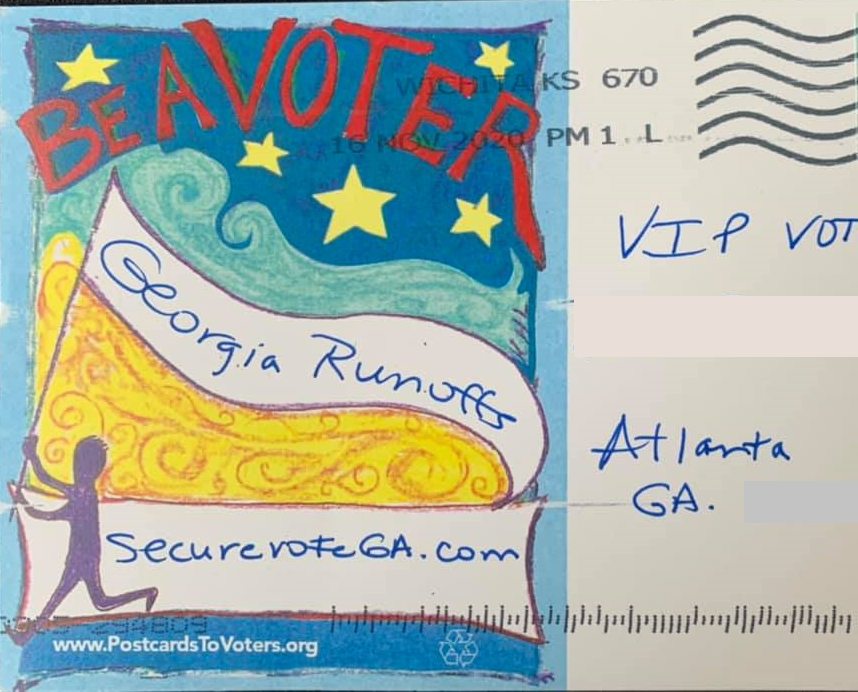 BE A VOTER
WICHITA KS 670
16 NOV 2020 PM 1 L
Georgia Runoffs
SecurevoteGA.com
www.PostcardsToVoters.org
VIP VOT
Atlanta
GA.